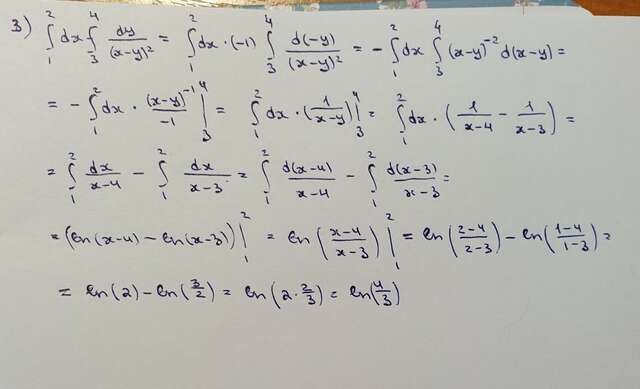 3) ∫₁² dx ∫₃⁴ dy/(x-y)² = ∫₁² dx · (-1) ∫₃⁴ d(-y)/(x-y)² = - ∫₁² dx ∫₃⁴ (x-y)⁻² d(x-y) =
= - ∫₁² dx · (x-y)⁻¹/-1 |₃⁴ = ∫₁² dx · (1/(x-y)) |₃⁴ = ∫₁² dx · (1/(x-4) - 1/(x-3)) =
= ∫₁² dx/(x-4) - ∫₁² dx/(x-3) = ∫₁² d(x-4)/(x-4) - ∫₁² d(x-3)/(x-3) =
= (ln(x-4) - ln(x-3)) |₁² = ln((x-4)/(x-3)) |₁² = ln((2-4)/(2-3)) - ln((1-4)/(1-3)) =
= ln(2) - ln(3/2) = ln(2 · 2/3) = ln(4/3)